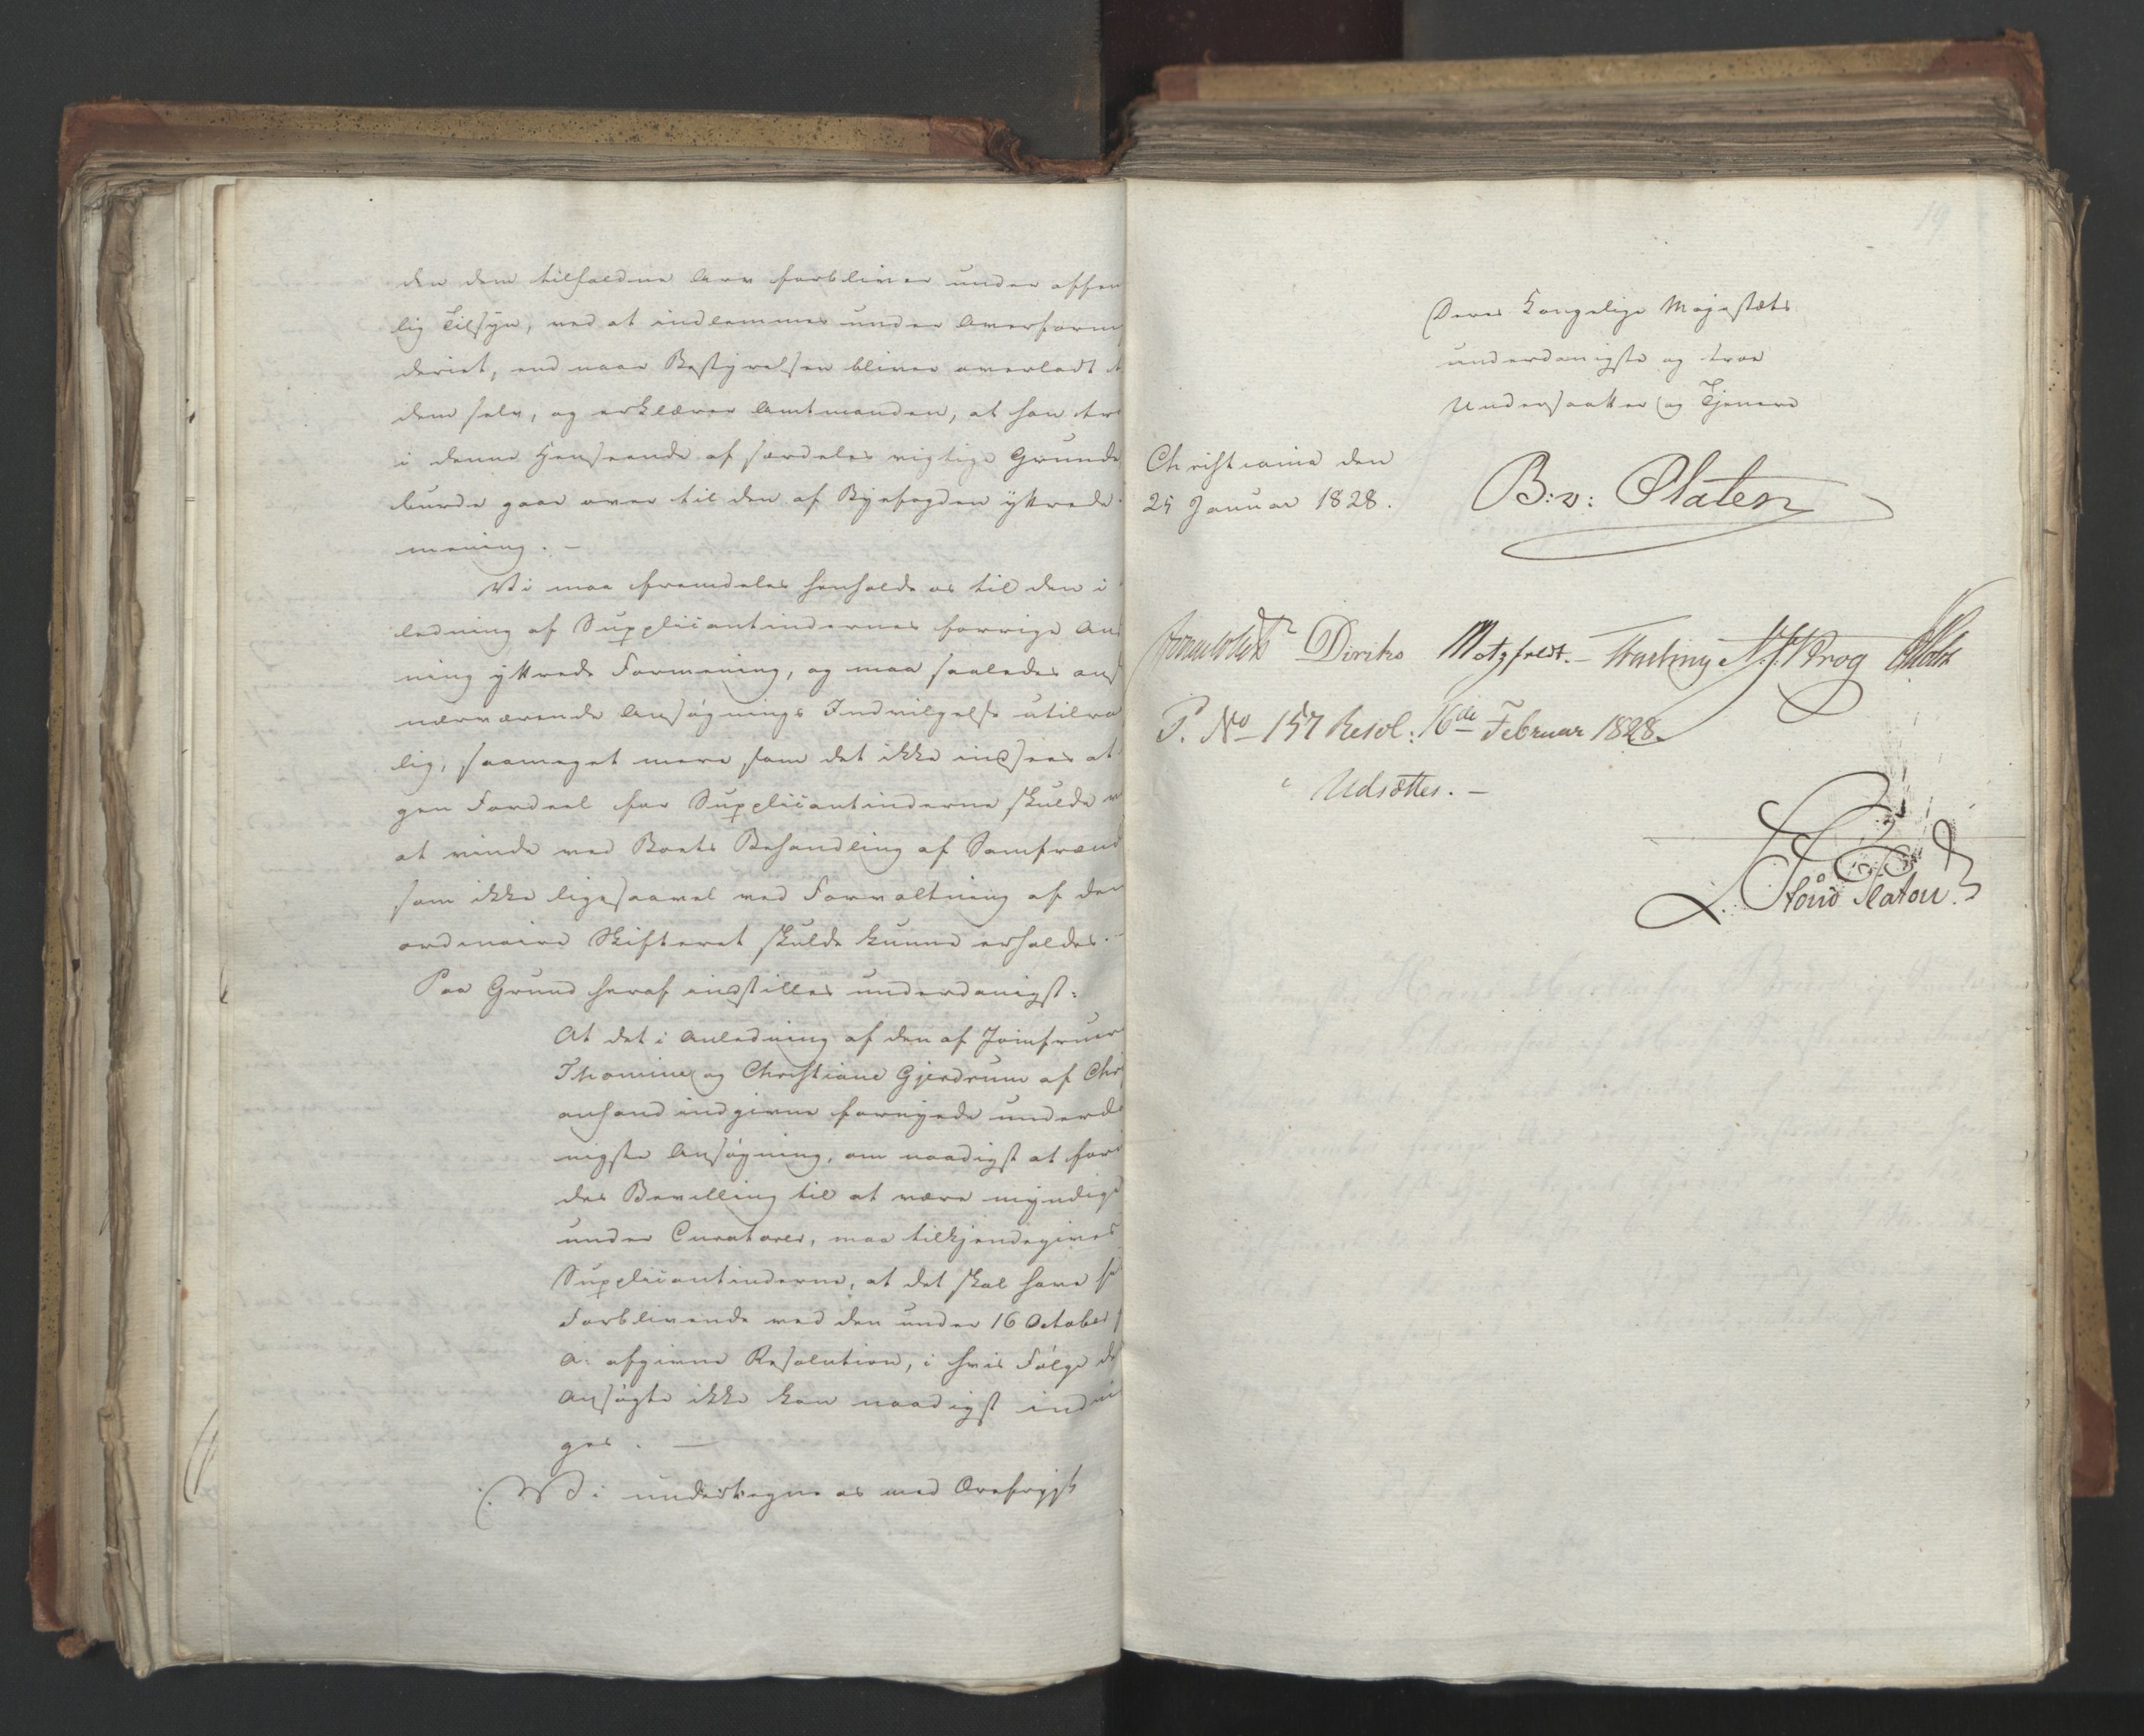 den dem tilfaldne Arv forbliver under offen
lig Tilsyn, ved at indlemmes under Overform
deriet, end naar Bestyrelsen bliver overladt t
dem selv, og erklærer Amtmanden, at han
i denne Henseende af særdeles vigtige Grunde
burde gaae over til den af Byefogden yttrede
mening. –
Vi maa fremdeles henholde os til den i
ledning af Supplicantindernes forrige An
ning yttrede Formening, og maa saaledes ans
nærværende Ansøgnings Indvilgelse utilra
lig, saameget mere som det ikke indsees at
gen Fordeel for Supplicantinderne skulde v
at vinde ved Boets Behandling af Samfrænd
som ikke ligesaavel ved Forvaltning af den
ordinaire Skifteret skulde kunne erholdes. –
Paa Grund heraf indstilles underdanigst:
At det i Anledning af den af Jomfruer
Thomine og Christiane Gjerdrum af Chr
ansand indgivne fornyede underda
nigste Ansøgning, om naadigst at for
des Bevilling til at være myndige
under Curatorer, maa tilkjendegives
Supplicantinderne, at det skal have si
Forblivende ved den under 16 October f
A: afgivne Resolution, i hvis Følge de
Ansøgte ikke kan naadigst indvil
ges. —
Vi undertegne os med Ærefrygt
19
Deres Kongelige Majestæts
underdanigste og troe
Undersaatter og Tjenere
Christiania den
25 Januar 1828.
B: v: Platen
Diriks Motzfeldt. – N. J. Krog
P. No 157 Resol: 16de Februar 1828.
Udsættes. –